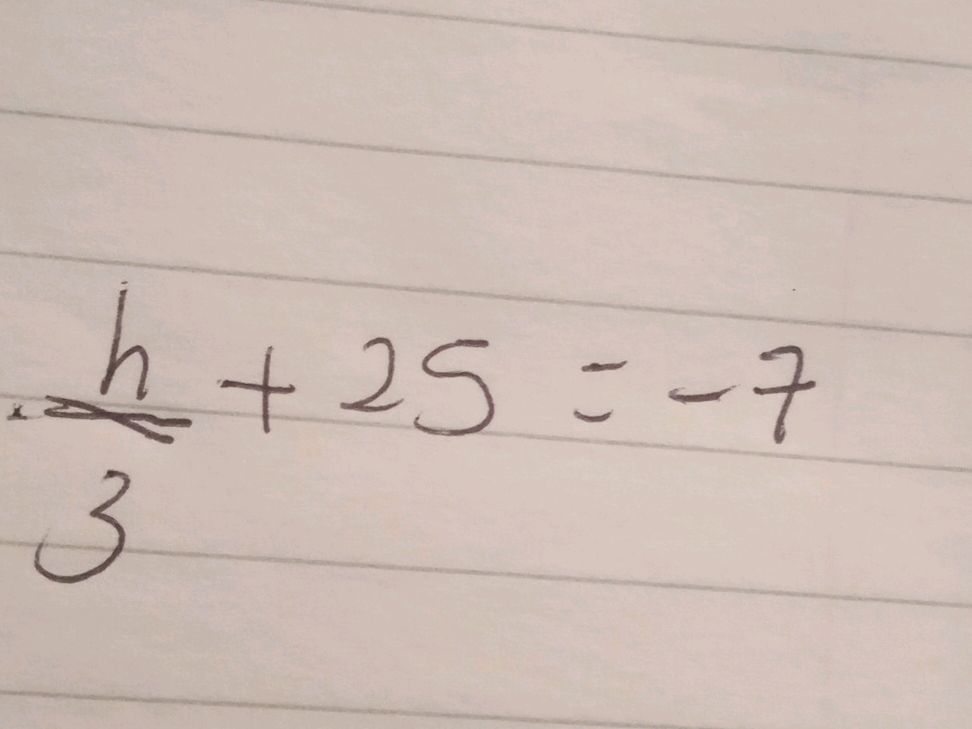 h/3 + 25 = -7